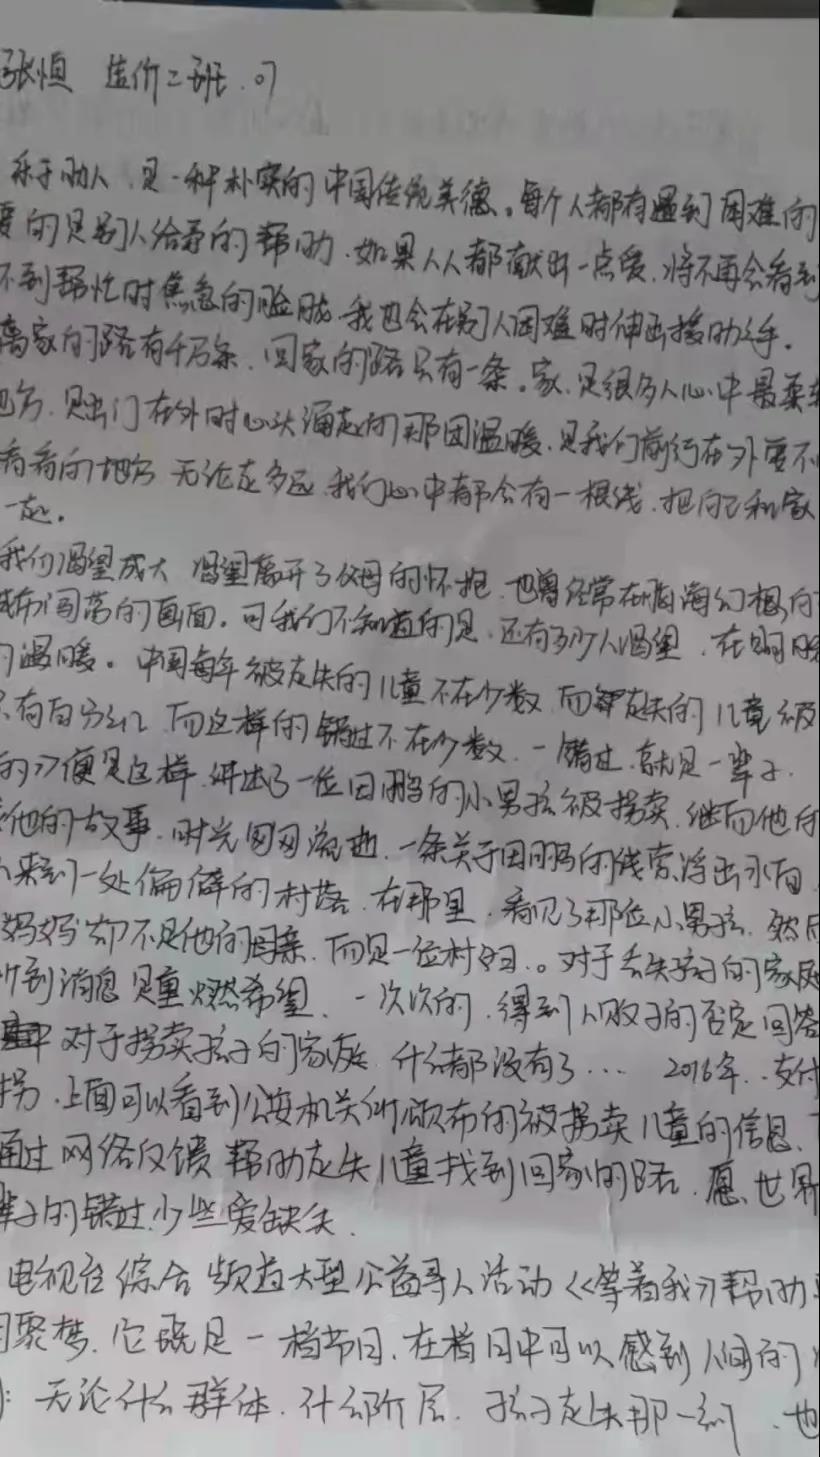 张恒 造价二班 07
乐于助人，是一种朴实的中国传统美德。每个人都有遇到困难的
要的是别人给予的帮助，如果人人都献出一点爱，将不再会看到
不到帮忙时焦急的脸庞，我也会在别人困难时伸出援助之手。
离家的路有千万条，回家的路只有一条。家，是很多人心中最柔软
地方，是出门在外时心头涌起的那团温暖，是我们前行在外要不
看看的地方 无论走多远，我们心中都会有一根线，把自己和家
一起。
我们渴望成大 渴望离开了父母的怀抱，也曾经常在脑海幻想的
城市闯荡的画面。可我们不知道的是，还有多少人渴望，在
的温暖。中国每年被走失的儿童不在少数，而走失的儿童被
只有百分之一 而这样的错过不在少数，一错过，就是一辈子.
的》便是这样，讲述了一位田鹏的小男孩被拐卖，继而他的
他的故事，时光匆匆流逝，一条关于田鹏的线索浮出水面，
来到一处偏僻的村落，在那里，看见了那位小男孩，然后
妈妈却不是他的母亲，而是一位村妇。对于丢失孩子的家庭
听到消息是重燃希望，一次次的，得到人贩子的否定回答
对于拐卖孩子的家庭，什么都没有了… 2016年，支付
拐，上面可以看到公安机关所颁布的被拐卖儿童的信息，
通过网络反馈 帮助走失儿童找到回家的路，愿世界
辈子的错过，少些爱缺失.
电视台综合频道大型公益寻人活动《等着我》帮助
团聚梦，它既是一档节目，在档目中可以感到人间的
：无论什么群体，什么阶层，孩子走失那一刻，也